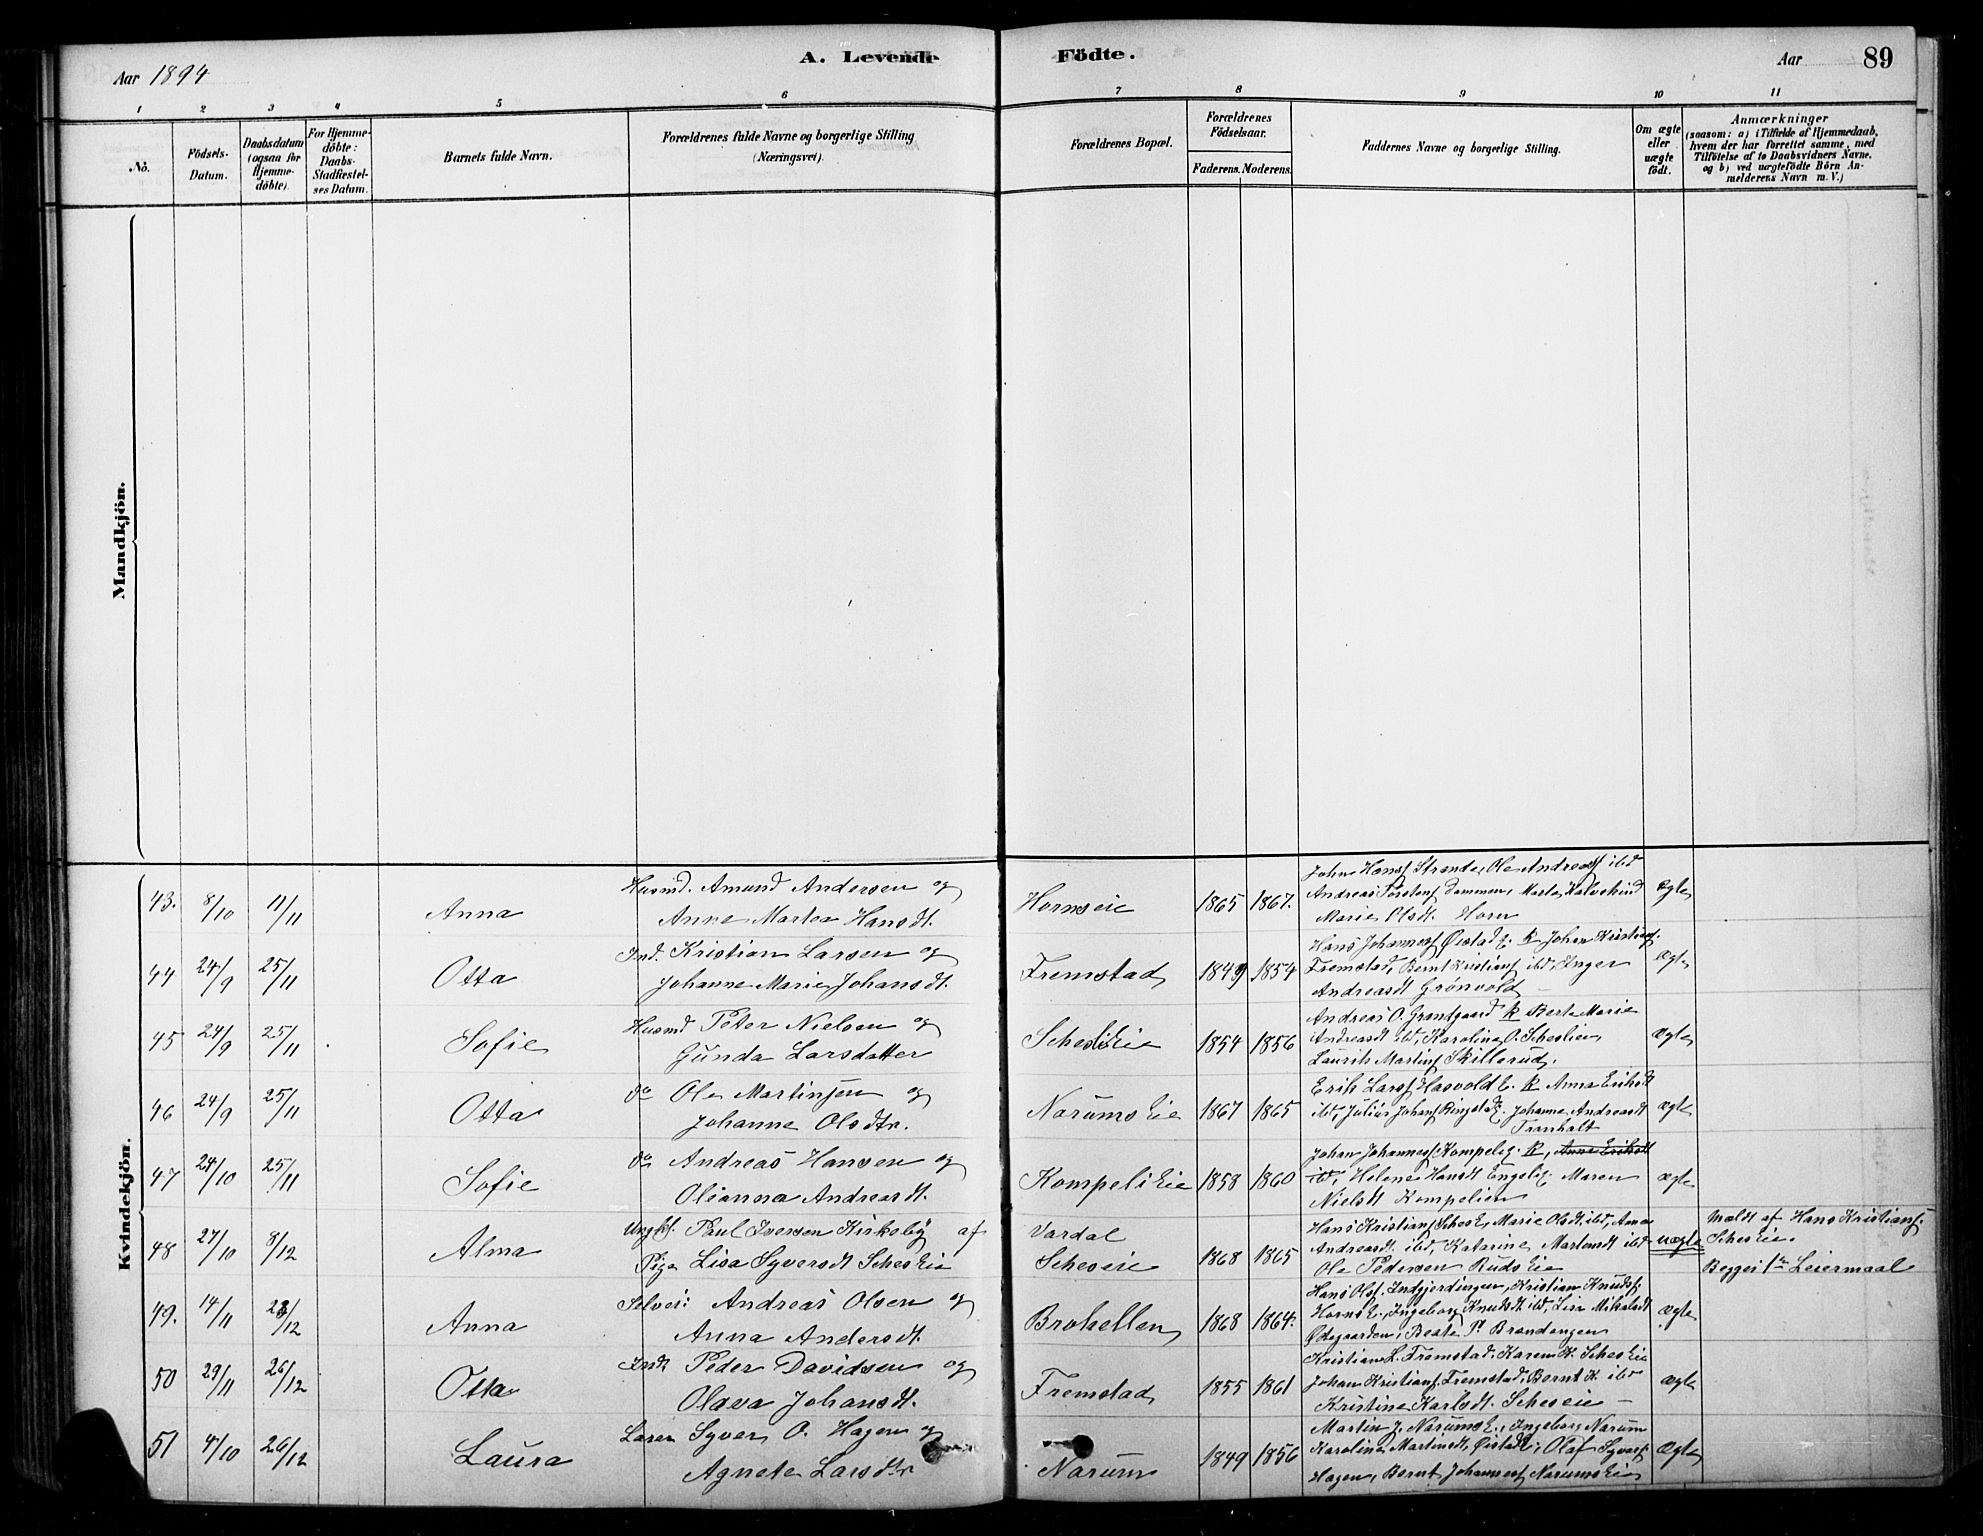 Aar 1894
A. Levende
Födte.
Aar
89
1 2 3 4 5 6 7 8 9 10 11
No.
Födsels-Datum.
Daabsdatum (ogsaa for Hjemmedöbte).
For Hjemmedöbte: Daabs-Stadfæstelses Datum.
Barnets fulde Navn.
Forældrenes fulde Navne og borgerlige Stilling (Næringsvei).
Forældrenes Bopæl.
Forældrenes Födselsaar.
Faderens. Moderens.
Faddernes Navne og borgerlige Stilling.
Om ægte eller uægte födt.
Anmærkninger (saasom: a) i Tilfælde af Hjemmedaab, hvem der har forrettet samme, med Tilföielse af to Daabsvidners Navne, og b) ved uægtefödte Börn Anmelderens Navn m. V.)
Mandkjön.
Kvindekjön.
43. 8/10 11/11 Anna
Husmd. Amund Andersen og
Anne Martea Hansdt.
Hornseie 1865 1867.
John Hansf Strande, Ole Andreasf ibd
Andreas Torstensf Dammen, Marte Kalvehud
Marie Olsdt. Horn
ægte
44 24/9 25/11 Otta
Ind. Kristian Larsen og
Johanne Marie Johansdt.
Fremstad 1849 1854
Hans Johannesf Øistad g. k Johan Kristiansf.
Fremstad, Bernt Kristiansf ibd, Inger
Andreasdt Grønvold
Ægte
45 24/9 25/11 Sofie
Husmd Peter Nielsen og
Gunda Larsdatter
SchesliEie 1854 1856
Andreas O. Grantgaard k Berte Marie
Andreasdt ibd, Karoline O. Scheslien
Laurits Martinsf Skillerud.
Ægte
46 24/9 25/11 Otta
do Ole Martinsen og
Johanne Olsdtr.
NarumsEie 1867 1865
Erik Larsf Hasvold E. k Anne Eriksdt
ibd, Julius Johansf Ringstad E. Johanne Andreasdt
Tranholt
ægte
47 24/10 25/11 Sofie
do Andreas Hansen og
Olianna Andreasdt.
KompeliEie 1858 1860
Johan Johannesf Kompelig. k, Anne Eriksdt
ibd, Helene Hansdt Engelig. Maren
Nielsdt Kompelien
ægte
48 27/10 8/12 Alma
Ungkf. Paul Iversen Kirkeby af
Pige Lisa Syversdt SchesEie
Vardal
Scheseie 1868 1865
Hans Kristiansf Sches E, Marie Olsdt ibd, Anne
Andreasdt ibd, Katarine Martensdt ibd
Ole Pedersen RudsEie
uægte
Meldt af Hans Kristiansf.
SchesEie.
Begges 1ste Leiermaal
49. 14/11 23/12 Anna
Selvei: Andreas Olsen og
Anna Andersdt.
Brohellen 1868 1864.
Hans Olsf. Indgjerdingen, Kristian Knudsf.
Horns E., Ingeborg Knutsdt ibd, Lise Mikelsdt
Ødegaarden, Beate P. Brændengen
Ægte
50 29/11 26/12 Otta
Indr Peder Davidsen og
Olava Johansdt.
Fremstad 1855 1861
Kristian L. Fremstad, Karen K. SchesEie
Johan Kristiansf. Fremstad, Bernt K ibd
Kristine Karlsdt. Scheseie
ægte
51 4/10 26/12 Laura
Lærer Syver O. Hagen og
Agnete Larsdtr
Narum 1849 1856
Martin J. Narums E., Ingeborg Narum
Karoline Martinsdt, Øistad E, Olaf Syversf.
Hagen, Bernt Johannesf NarumsEie
Ægte